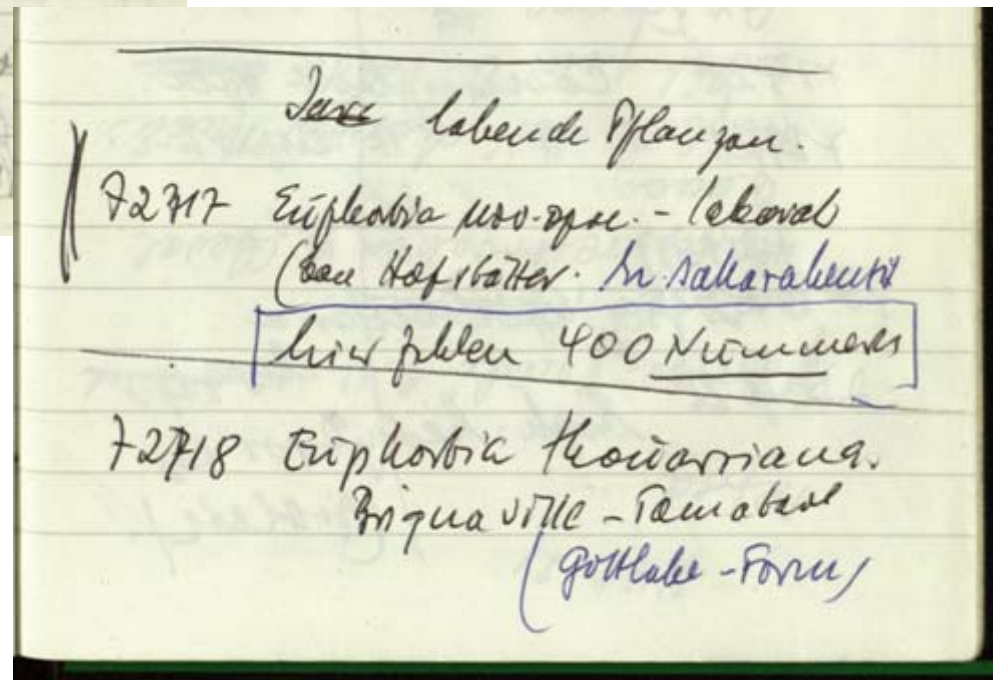 lebende Pflanzen.
72717 Euphorbia nov. spec. -
(von Hofstätter. In. sakarahensis
hier fehlen 400 Nummern
72718 Euphorbia thouarsiana.
Briquaville - Tamatave
(Gottlebe - Form)